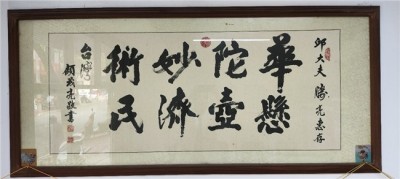 邱大夫 勝亮惠存
華懸
陀壺
妙濟
術民
台灣
敬書